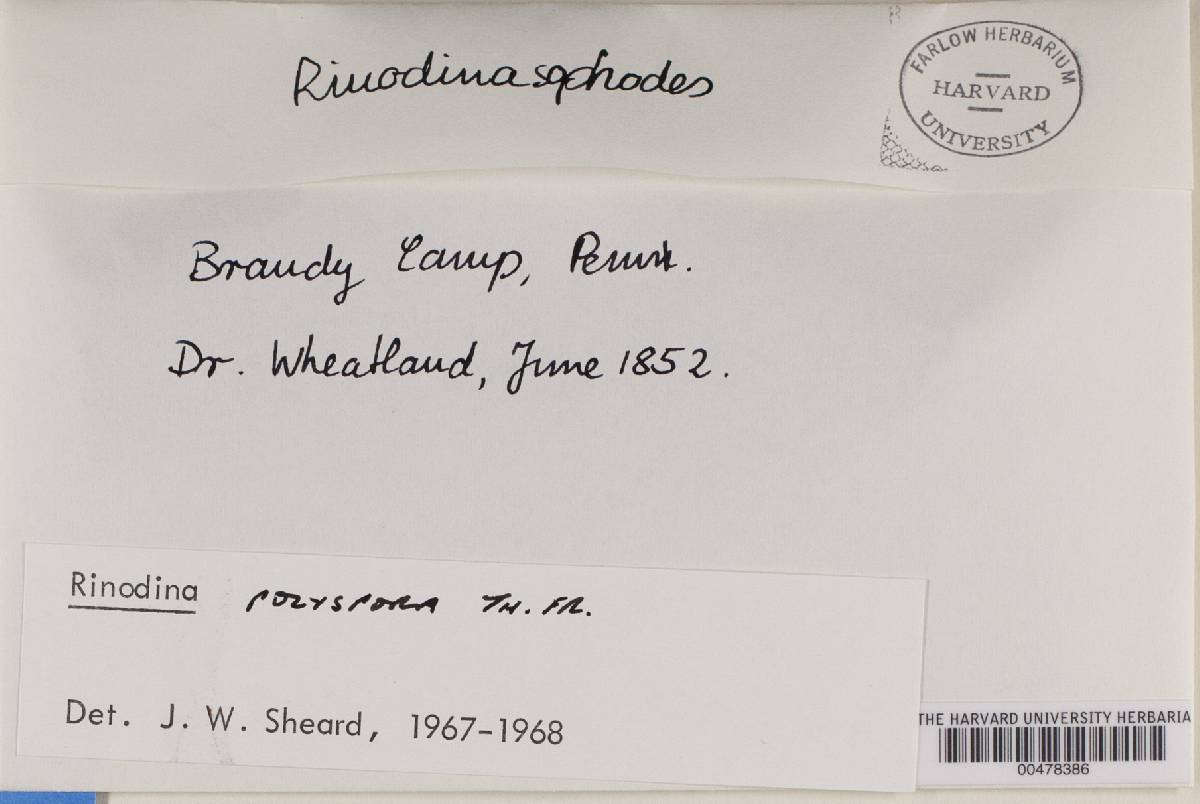 Rinodina sophodes
FARLOW HERBARIUM
HARVARD
UNIVERSITY
Brandy Camp, Penn.
Dr. Wheatland, June 1852.
Rinodina POLYSPORA TH. FR.
Det. J. W. Sheard, 1967-1968
THE HARVARD UNIVERSITY HERBARIA
00478386